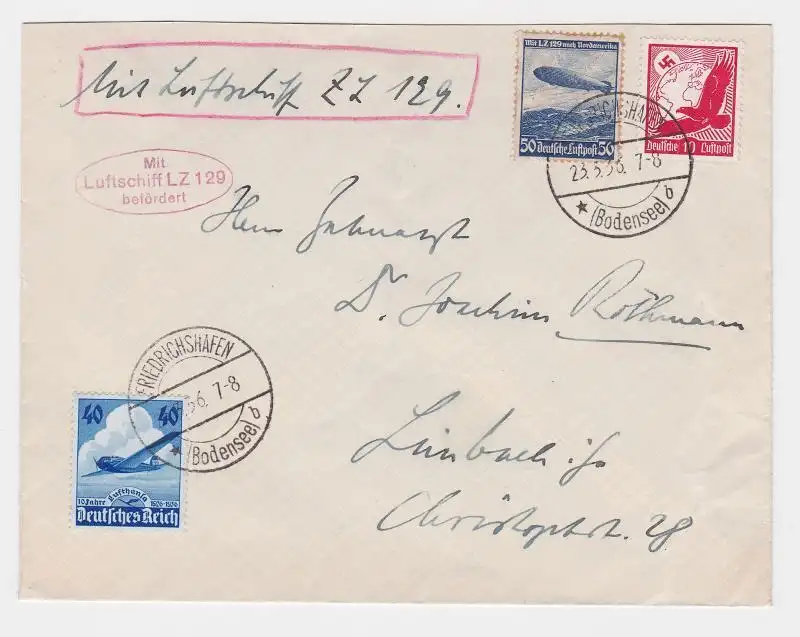 Mit Luftschiff LZ 129.
Mit LZ 129 nach Nordamerika
50 Deutsche Luftpost 50
Deutsche 10 Luftpost
FRIEDRICHSHAFEN
23.3.36. 7-8
(Bodensee) b
Mit
Luftschiff LZ 129
befördert
Herrn Zahnarzt
Dr. Joachim Rothmann
FRIEDRICHSHAFEN
36. 7-8
(Bodensee) b
40 40
10 Jahre Lufthansa 1926-1936
Deutsches Reich
Limbach i/Sa
Christophstr. 28